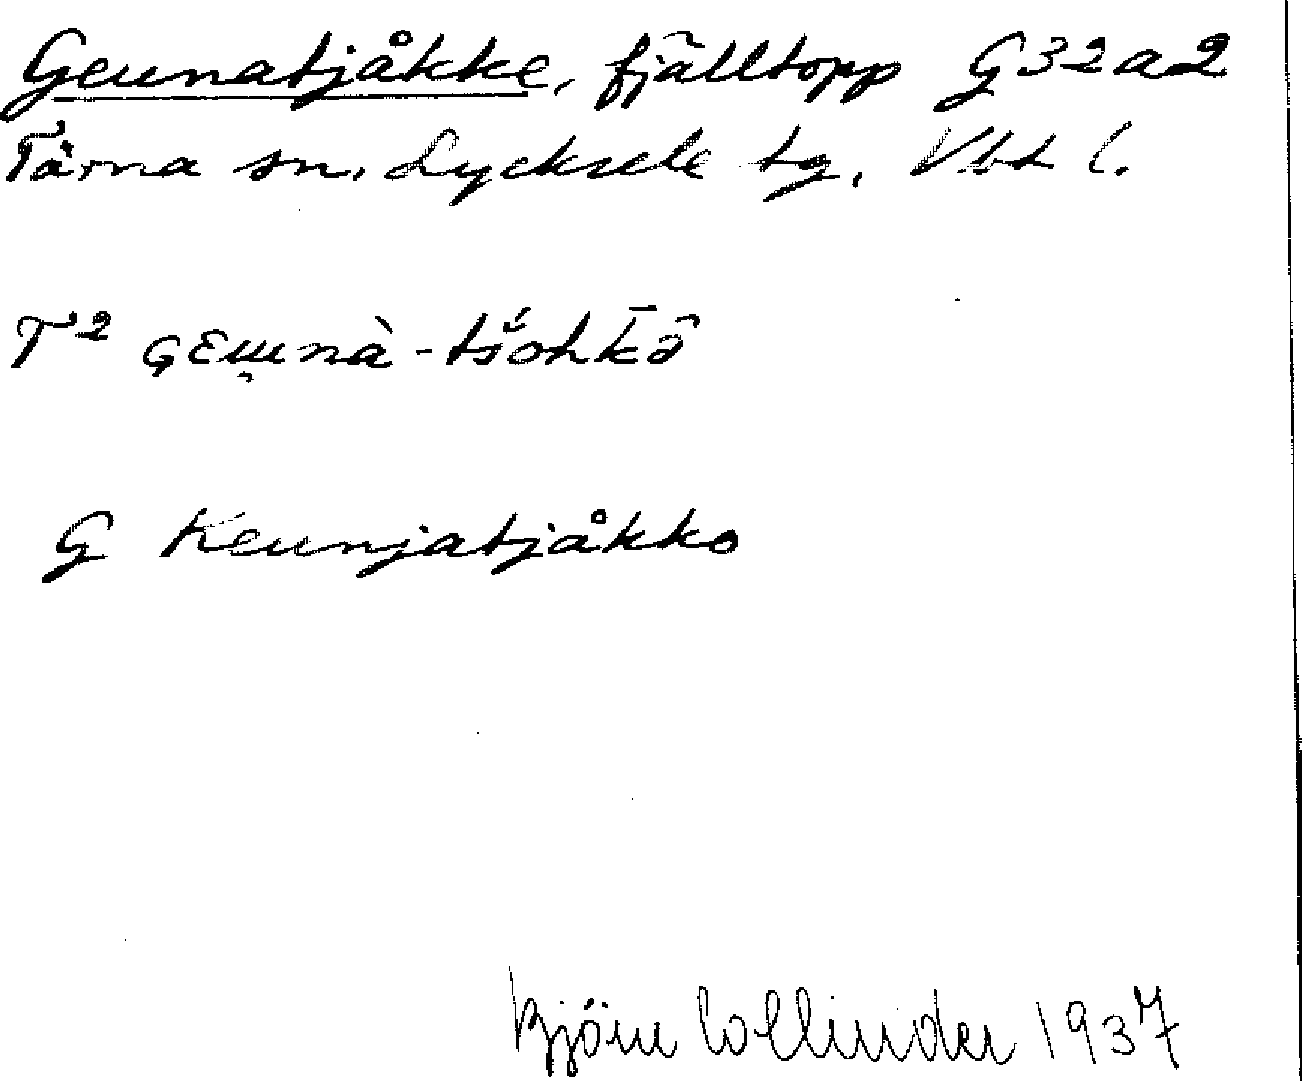 Geunatjåkke, fjälltopp G32a2
Tärna sn. Lycksele tg. Vbt l.
T² ɢɛɯ̯nà-tš́oh̄kə̂
G Keunjatjåkko
Björn Collinder 1937